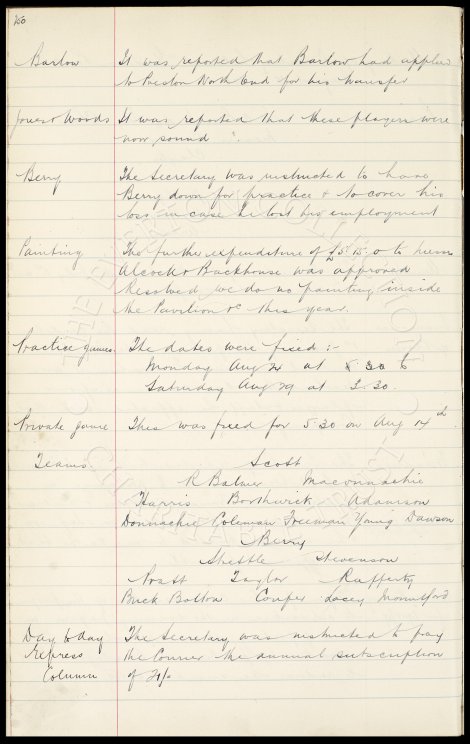 166
Barlow It was reported that Barlow had applied
to Preston North End for his transfer
Jones & Woods It was reported that these players were
now sound.
Berry The Secretary was instructed to have
Berry down for practice & to cover his
loss in case he lost his employment
Painting The further expenditure of £5.15.0 to Messrs
Alcock & Backhouse was approved
Resolved we do no painting inside
the Pavilion &c this year.
Practice games. The dates were fixed :-
Monday Aug 24 at 6
Saturday Aug 29 at 3.30.
Private game This was fixed for 5-30 on Aug 14th
Teams. Scott
R Balmer Maconnachie
Harris Borthwick Adamson
Donnachie Coleman Freeman Young Dawson
Berry
Shettle Stevenson
Pratt Taylor Rafferty
Buck Bolton Couper Lacey Mountford
Day to day The Secretary was instructed to pay
Express the Courier the annual subscription
Column of 21/-